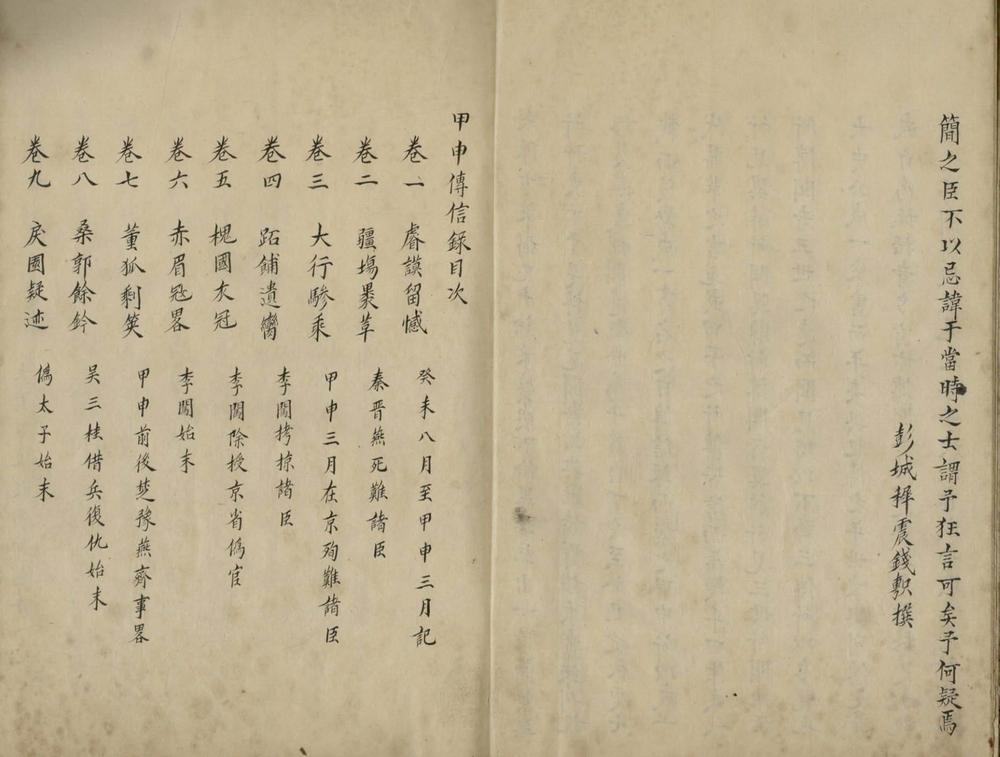 簡之臣不以忌諱于當時之士謂予狂言可矣予何疑焉
彭城穉農錢𪁪撰
甲申傳信錄目次
卷一 睿謨留憾 癸未八月至甲申三月記
卷二 疆埸裹革 秦晉燕死難諸臣
卷三 大行驂乘 甲申三月在京殉難諸臣
卷四 跖餔遺臠 李闖拷掠諸臣
卷五 槐國衣冠 李闖除授京省僞官
卷六 赤眉寇畧 李闖始末
卷七 董狐剩筴 甲申前後楚豫燕齊事畧
卷八 桑郭餘鈴 吳三桂借兵復仇始末
卷九 戾園疑迹 僞太子始末